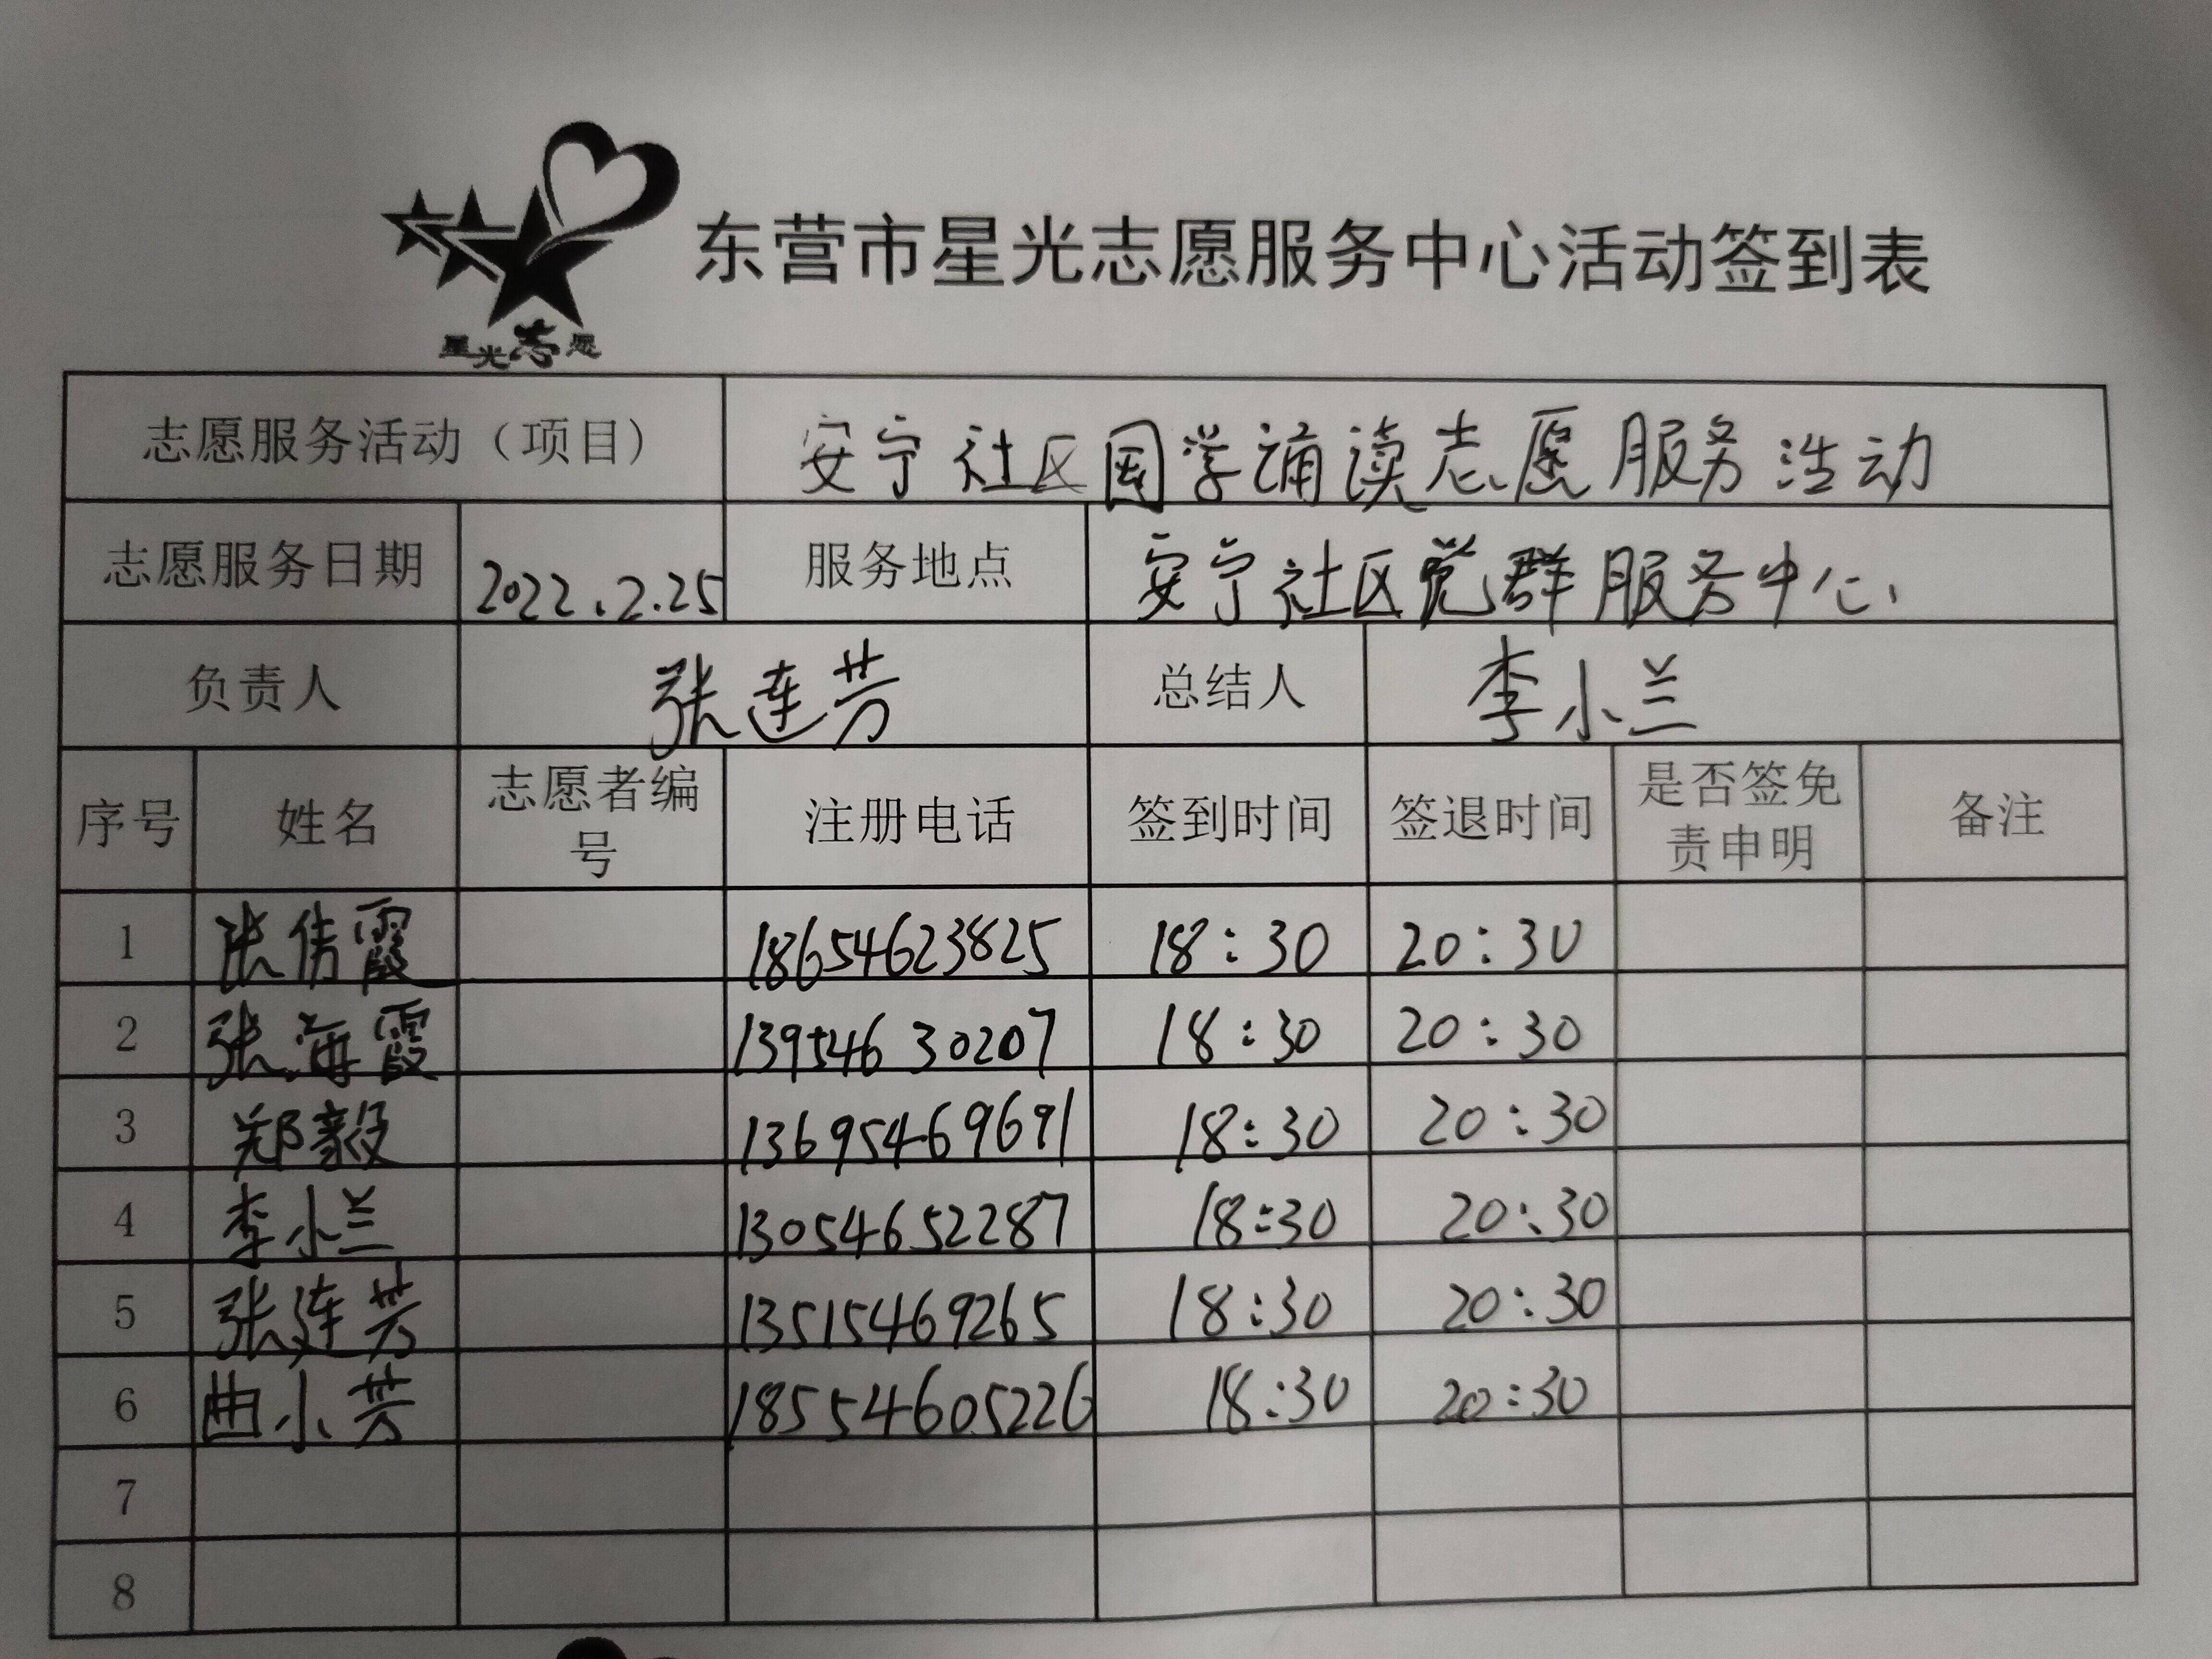 东营市星光志愿服务中心活动签到表
星光志愿
志愿服务活动（项目） 安宁社区国学诵读志愿服务活动
志愿服务日期 2022.2.25 服务地点 安宁社区党群服务中心
负责人 张连芳 总结人 李小兰
序号 姓名 志愿者编号 注册电话 签到时间 签退时间 是否签免责申明 备注
1 张倩霞 18654623825 18:30 20:30
2 张海霞 13954630207 18:30 20:30
3 郑毅 13695469691 18:30 20:30
4 李小兰 13054652287 18:30 20:30
5 张连芳 13515469265 18:30 20:30
6 曲小芳 18554605226 18:30 20:30
7
8